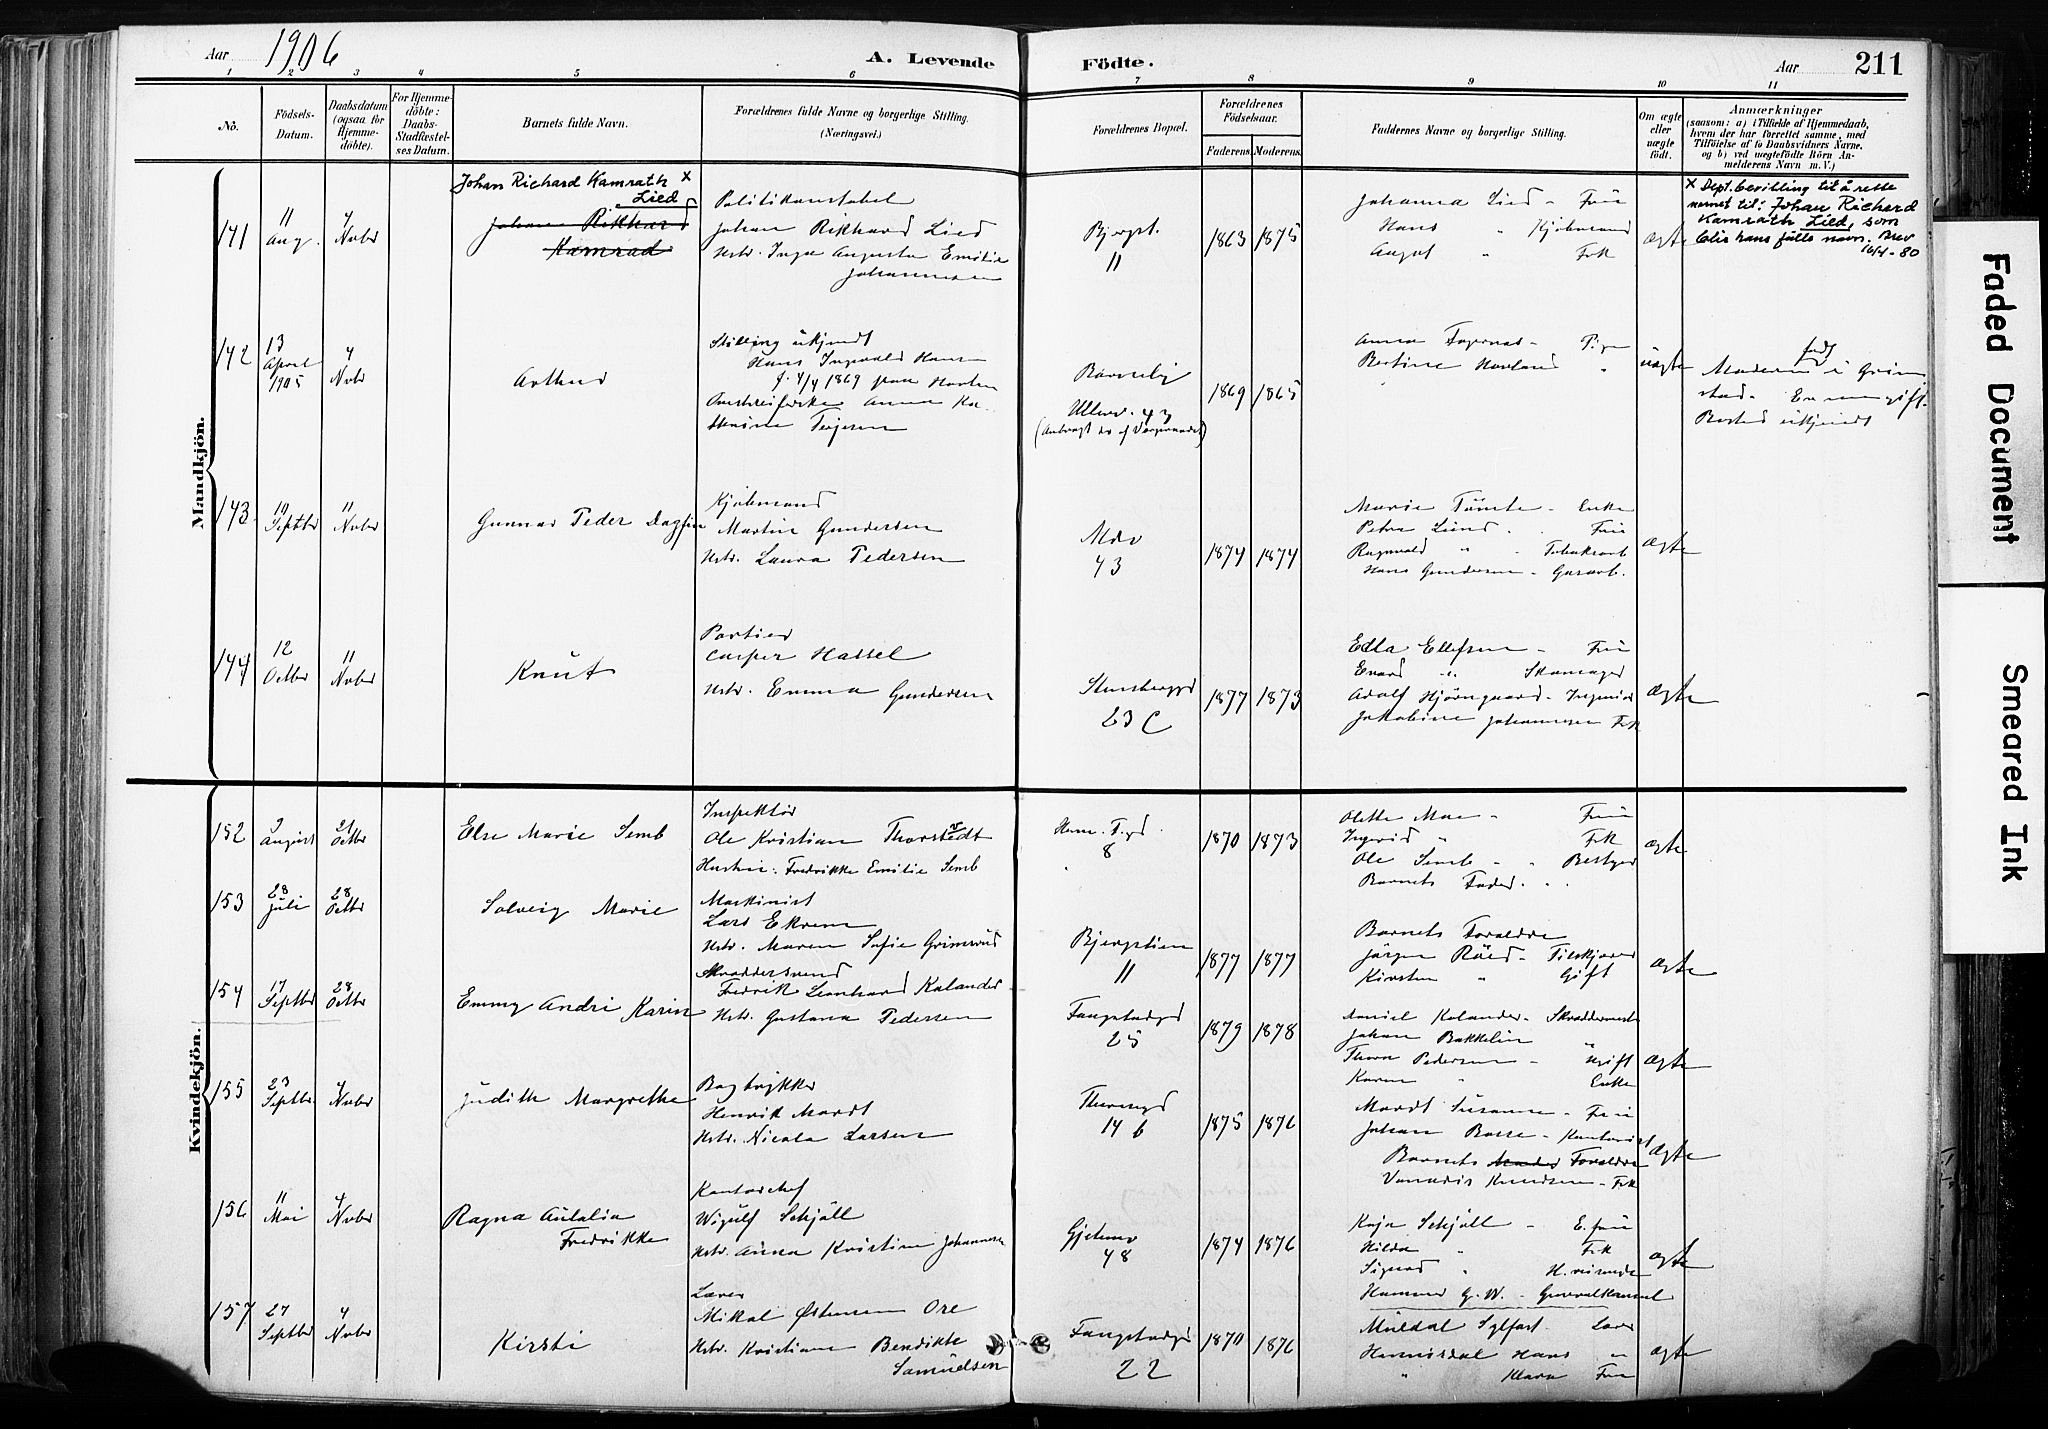 Aar 1906
A. Levende Födte.
Aar 211
1 2 3 4 5 6 7 8 9 10 11
No.
Födsels-
Datum.
Daabsdatum
(ogsaa for
Hjemme-
döbte).
For Hjemme-
döbte:
Daabs-
Stadfæstel-
ses Datum.
Barnets fulde Navn.
Forældrenes fulde Navne og borgerlige Stilling.
(Næringsvei.)
Forældrenes Bopæl.
Forældrenes
Födselsaar.
Faderens. Moderens.
Faddernes Navne og borgerlige Stilling.
Om ægte
eller
uægte
födt.
Anmærkninger
(saasom: a) i Tilfælde af Hjemmedaab,
hvem der har forrettet samme, med
Tilföielse af to Daabsvidners Navne.
og b) ved uægtefödte Börn An-
melderens Navn m. V.)
Mandkjön.
141
11
Aug.
4
Novbr
Johan Richard Kamrath x
Lied
Johan Rikhard
Kamrad
Politikonstabel
Johan Rikhard Lied
Hstr. Inga Augusta Emilie
Johannesen
Bjergst.
11
1863 1875
Johanna Lied - Frü
Hans " Kjøbmand
August " Frk
ægte
x Dept. bevilling til å rette
navnet til: Johan Richard
Kamrath Lied, som
blir hans fulle navn. Brev
16/4-80
142
13
April
1905
4
Novbr
Arthur
Stilling ükjendt
Hans Ingvald Hansen
f. 4/4 1869 paa Horten
Anna
Terjesen
Ullerv. 43
1869 1865
Anna - Pige
Bertine Hovland "
üægte
Moderen født i Grim
stad. En
Bosted ükjendt
143
19
Septbr
11
Novbr
Gunnar Peder Dagfin
Kjøbmand
Martin Gundersen
Hstr. Laura Pedersen
43
1874 1874
Marie Tømte - Enke
Petra Lünd - Früe
Ragnvald " - Tobaksarb
Hans Gundersen - Gasarb.
ægte
144
12
Octbr
11
Novbr
Knut
Portier
Casper Hassel
Hstr. Emma Gundersen
Stensberggd
23 C
1877 1873
Edla Ellefsen - Frü
" Skomager
Adolf - Ingeniør
Jakobine Johannesen Frk
ægte
Kvindekjön.
152
2
August
21
Octbr
Else Marie Semb
Inspektør
Ole Kristian Thorstvedt
Hustru: Fredrikke Emilie Semb
8
1870 1873
Olette Moe - Früe
Ingerid " Frk
Ole Semb - " Bestyrer
Barnets Fader.
ægte
153
28
Juli
28
Octbr
Solveig Marie
Maskinist
Lars Ekrem
Hstr. Maren Sofie Grimsrüd
Bjergstien
11
1877 1877
Barnets Forældre
Jørgen Røed -
Kirsten " Gift
ægte
154
17
Septbr
28
Octbr
Emmy Andri Karin
Skræddersvend
Fredrik Leonhard Kalander
Hstr. Gustava Pedersen
25
1879 1878
Daniel Kalander - Skræddermest
Johan Bakkelin "
Thora Pedersen - ügift
Karen " Enke
ægte
155
23
Septbr
4
Novbr
Jüdith Margrethe
Bogtrykker
Henrik Mardt
Hstr. Nicola Larsen
14 b
1875 1876
Mardt Süsanne - Früe
Johan - Kontorist
Barnets Moder Forældre
Knudsen - Frk
ægte
156
11
Mai
4
Novbr
Ragna Aütalia
Fredrikke
Kontorchef
Wigülf Schjøll
Hstr. Anna Kristine Johannesen
48
1874 1876
Kaja Schjøll - E. früe
Hilda " Frk
Sigurd " H. reisende
Hammer G. W. - Generalkonsul
ægte
157
27
Septbr
4
Novbr
Kirsti
Lærer
Mikal Østensen Ore
Hstr. Kristiane Bendikte
Samüelsen
22
1870 1876
Müldal Sylfest. Lærer
Hans "
" Klara Früe
ægte
Faded Document
Smeared Ink